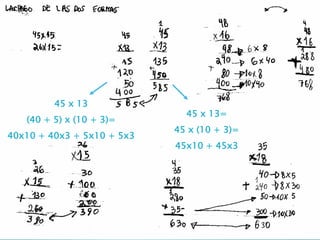 LACHAGO DE LAS DOS FORMAS
45x15
26x15=
45
x13
15
+120
50
400
585
1
45
x13
135
+450
585
48
x16
48 → 6x8
240 → 6x40
+ 80 → 10x8
400 → 10x40
768
4
48
x16
288
+480
768
45 x 13
(40 + 5) x (10 + 3)=
40x10 + 40x3 + 5x10 + 5x3
45 x 13=
45 x (10 + 3)=
45x10 + 45x3
26
x15
30
+100
60
200
390
26
x15
130
+260
390
4
35
x18
280
+35-
630
35
x18
40 → 8x5
+240 → 8x30
50 → 10x5
300 → 10x30
630